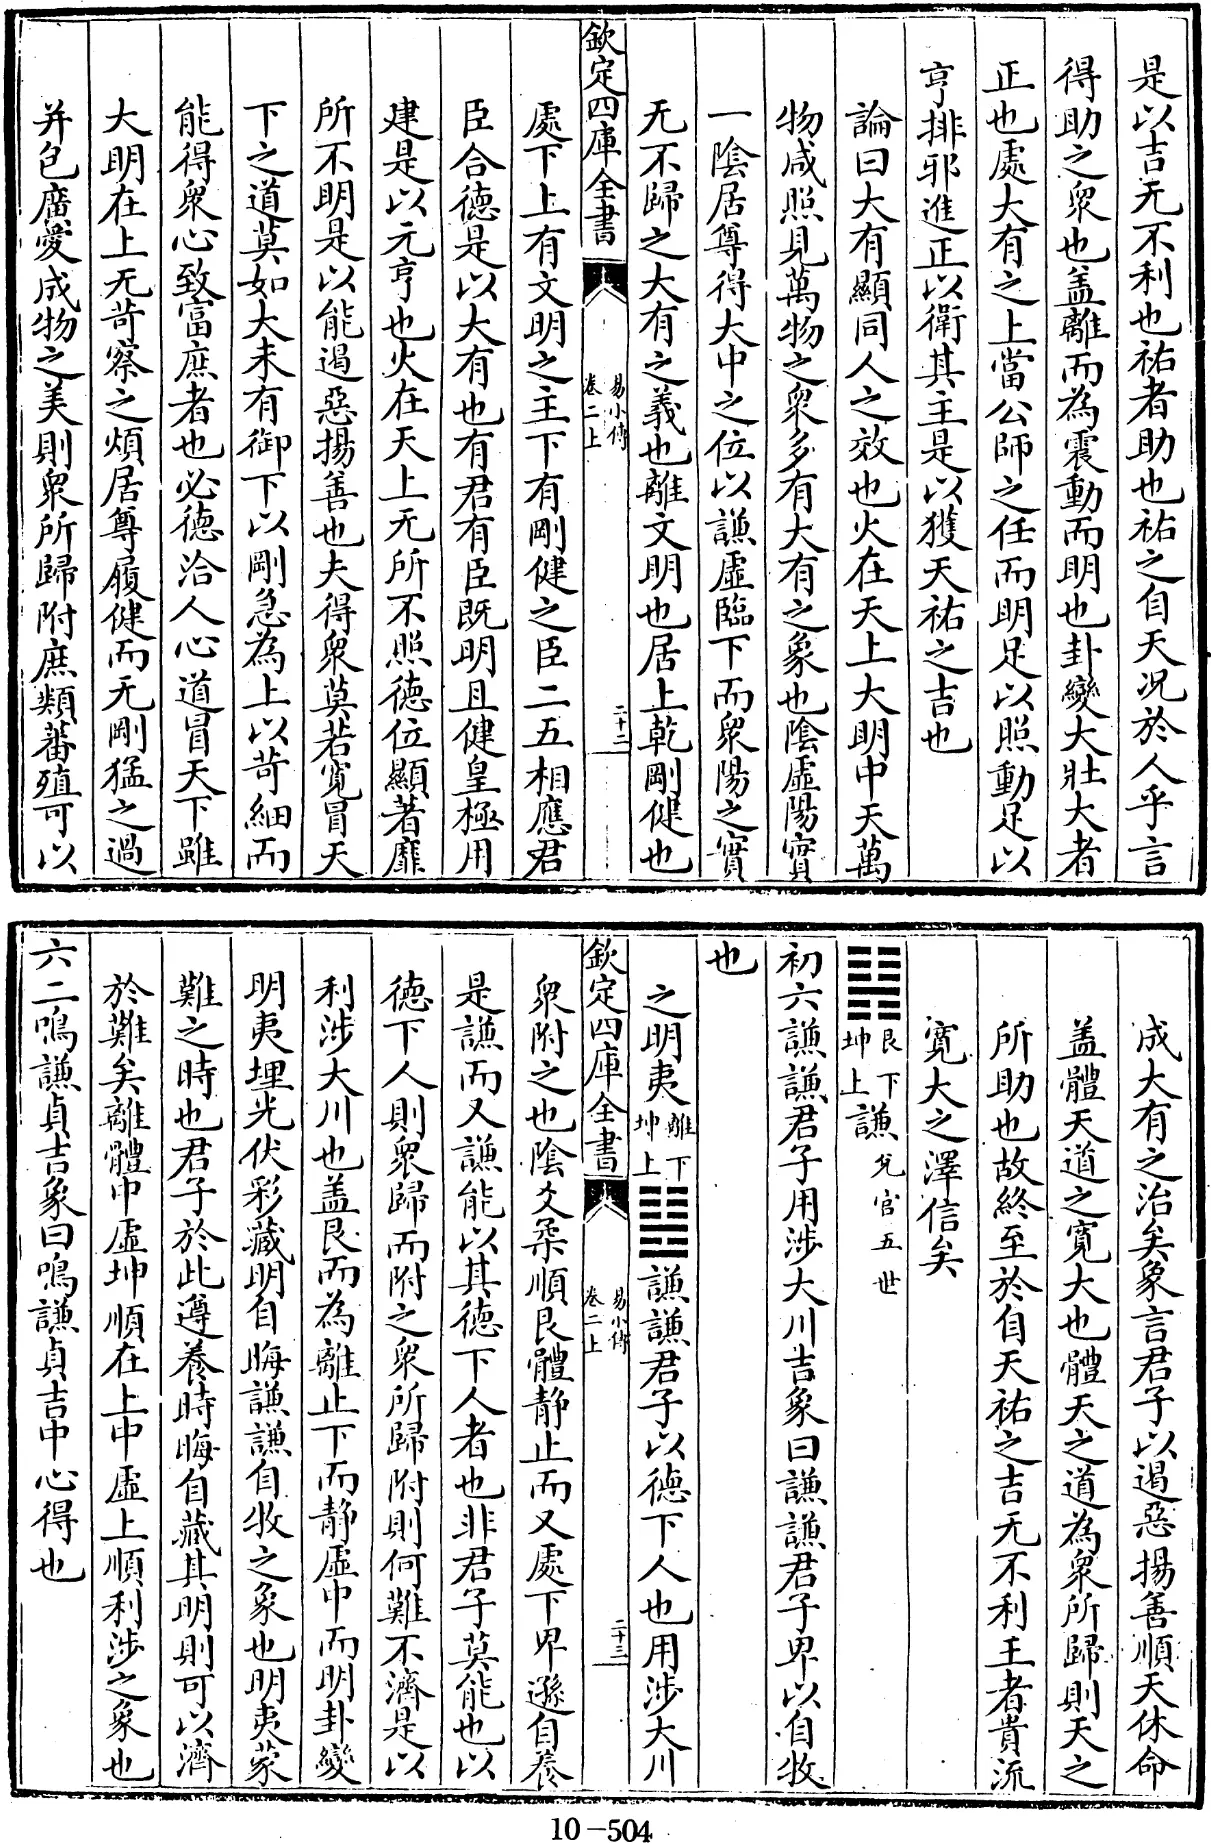 是以吉无不利也祐者助也祐之自天况於人乎言
得助之衆也盖離而為震動而明也卦變大壯大者
正也處大有之上當公師之任而明足以照動足以
亨排邪進正以衛其主是以獲天祐之吉也
論曰大有顯同人之效也火在天上大明中天萬
物咸照見萬物之衆多有大有之象也陰虛陽實
一陰居尊得大中之位以謙虛臨下而衆陽之實
无不歸之大有之義也離文明也居上乾剛健也
欽定四庫全書
易小傳
卷二上
二十二
處下上有文明之主下有剛健之臣二五相應君
臣合德是以大有也有君有臣既明且健皇極用
建是以元亨也火在天上无所不照德位顯著靡
所不明是以能遏惡揚善也夫得衆莫若寛冒天
下之道莫如大未有御下以剛急為上以苛細而
能得衆心致富庶者也必德洽人心道冒天下雖
大明在上无苛察之煩居尊履健而无剛猛之過
并包廣愛成物之美則衆所歸附庶類蕃殖可以
成大有之治矣象言君子以遏惡揚善順天休命
盖體天道之寛大也體天之道為衆所歸則天之
所助也故終至於自天祐之吉无不利王者貴流
寛大之澤信矣
䷎艮下坤上謙兌宫五世
初六謙謙君子用涉大川吉象曰謙謙君子卑以自牧
也
之明夷離下坤上䷣謙謙君子以德下人也用涉大川
欽定四庫全書
易小傳
卷二上
二十三
衆附之也陰爻柔順艮體靜止而又處下卑遜自養
是謙而又謙能以其德下人者也非君子莫能也以
德下人則衆歸而附之衆所歸附則何難不濟是以
利涉大川也盖艮而為離止下而靜虛中而明卦變
明夷埋光伏彩藏明自晦謙謙自牧之象也明夷蒙
難之時也君子於此遵養時晦自藏其明則可以濟
於難矣離體中虛坤順在上中虛上順利涉之象也
六二鳴謙貞吉象曰鳴謙貞吉中心得也
10-504